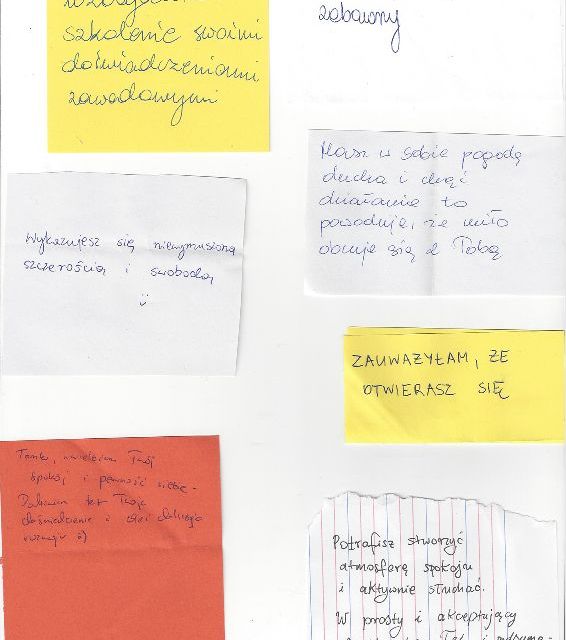 szkolenie swoimi
doświadczeniami
zawodowymi
zabawny
Masz w sobie pogodę
ducha i chęć
działania to
powoduje, że miło
obcuje się z Tobą
Wykazujesz się niewymuszoną
szczerością i swobodą
ZAUWAŻYŁAM, ŻE
OTWIERASZ SIĘ
Twój
spokój i pewność siebie.
też Twoje
doświadczenie i chęć dalszego
rozwoju :)
Potrafisz stworzyć
atmosferę spokoju
i aktywnie słuchać.
W prosty i akceptujący